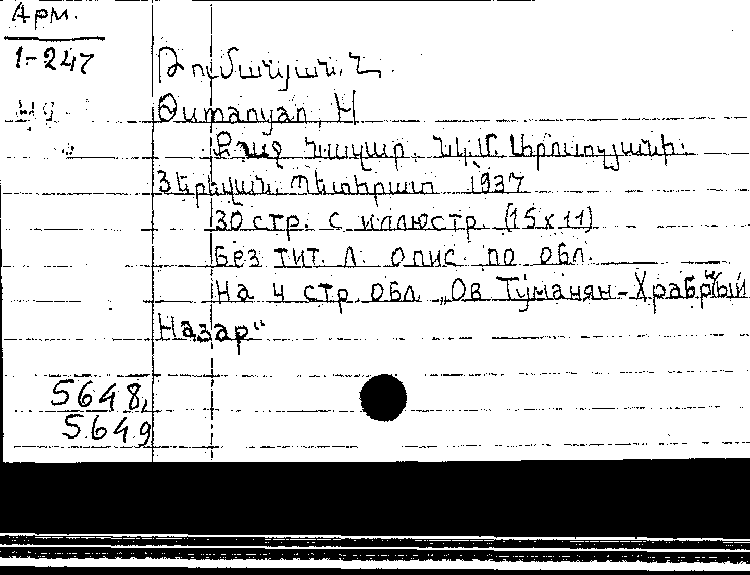 Арм.
1-247
Թումանյան, Հ.
Թumanyan, H
Քաջ Նազար. Նկ. Մ.
Յերեվան. Պետհրատ 1937
30 стр. с иллюстр. (15x11)
Без тит. л. опис. по обл.
На 4 стр. обл. „Ов Туманян-Храбрый
Назар“
5648,
5649